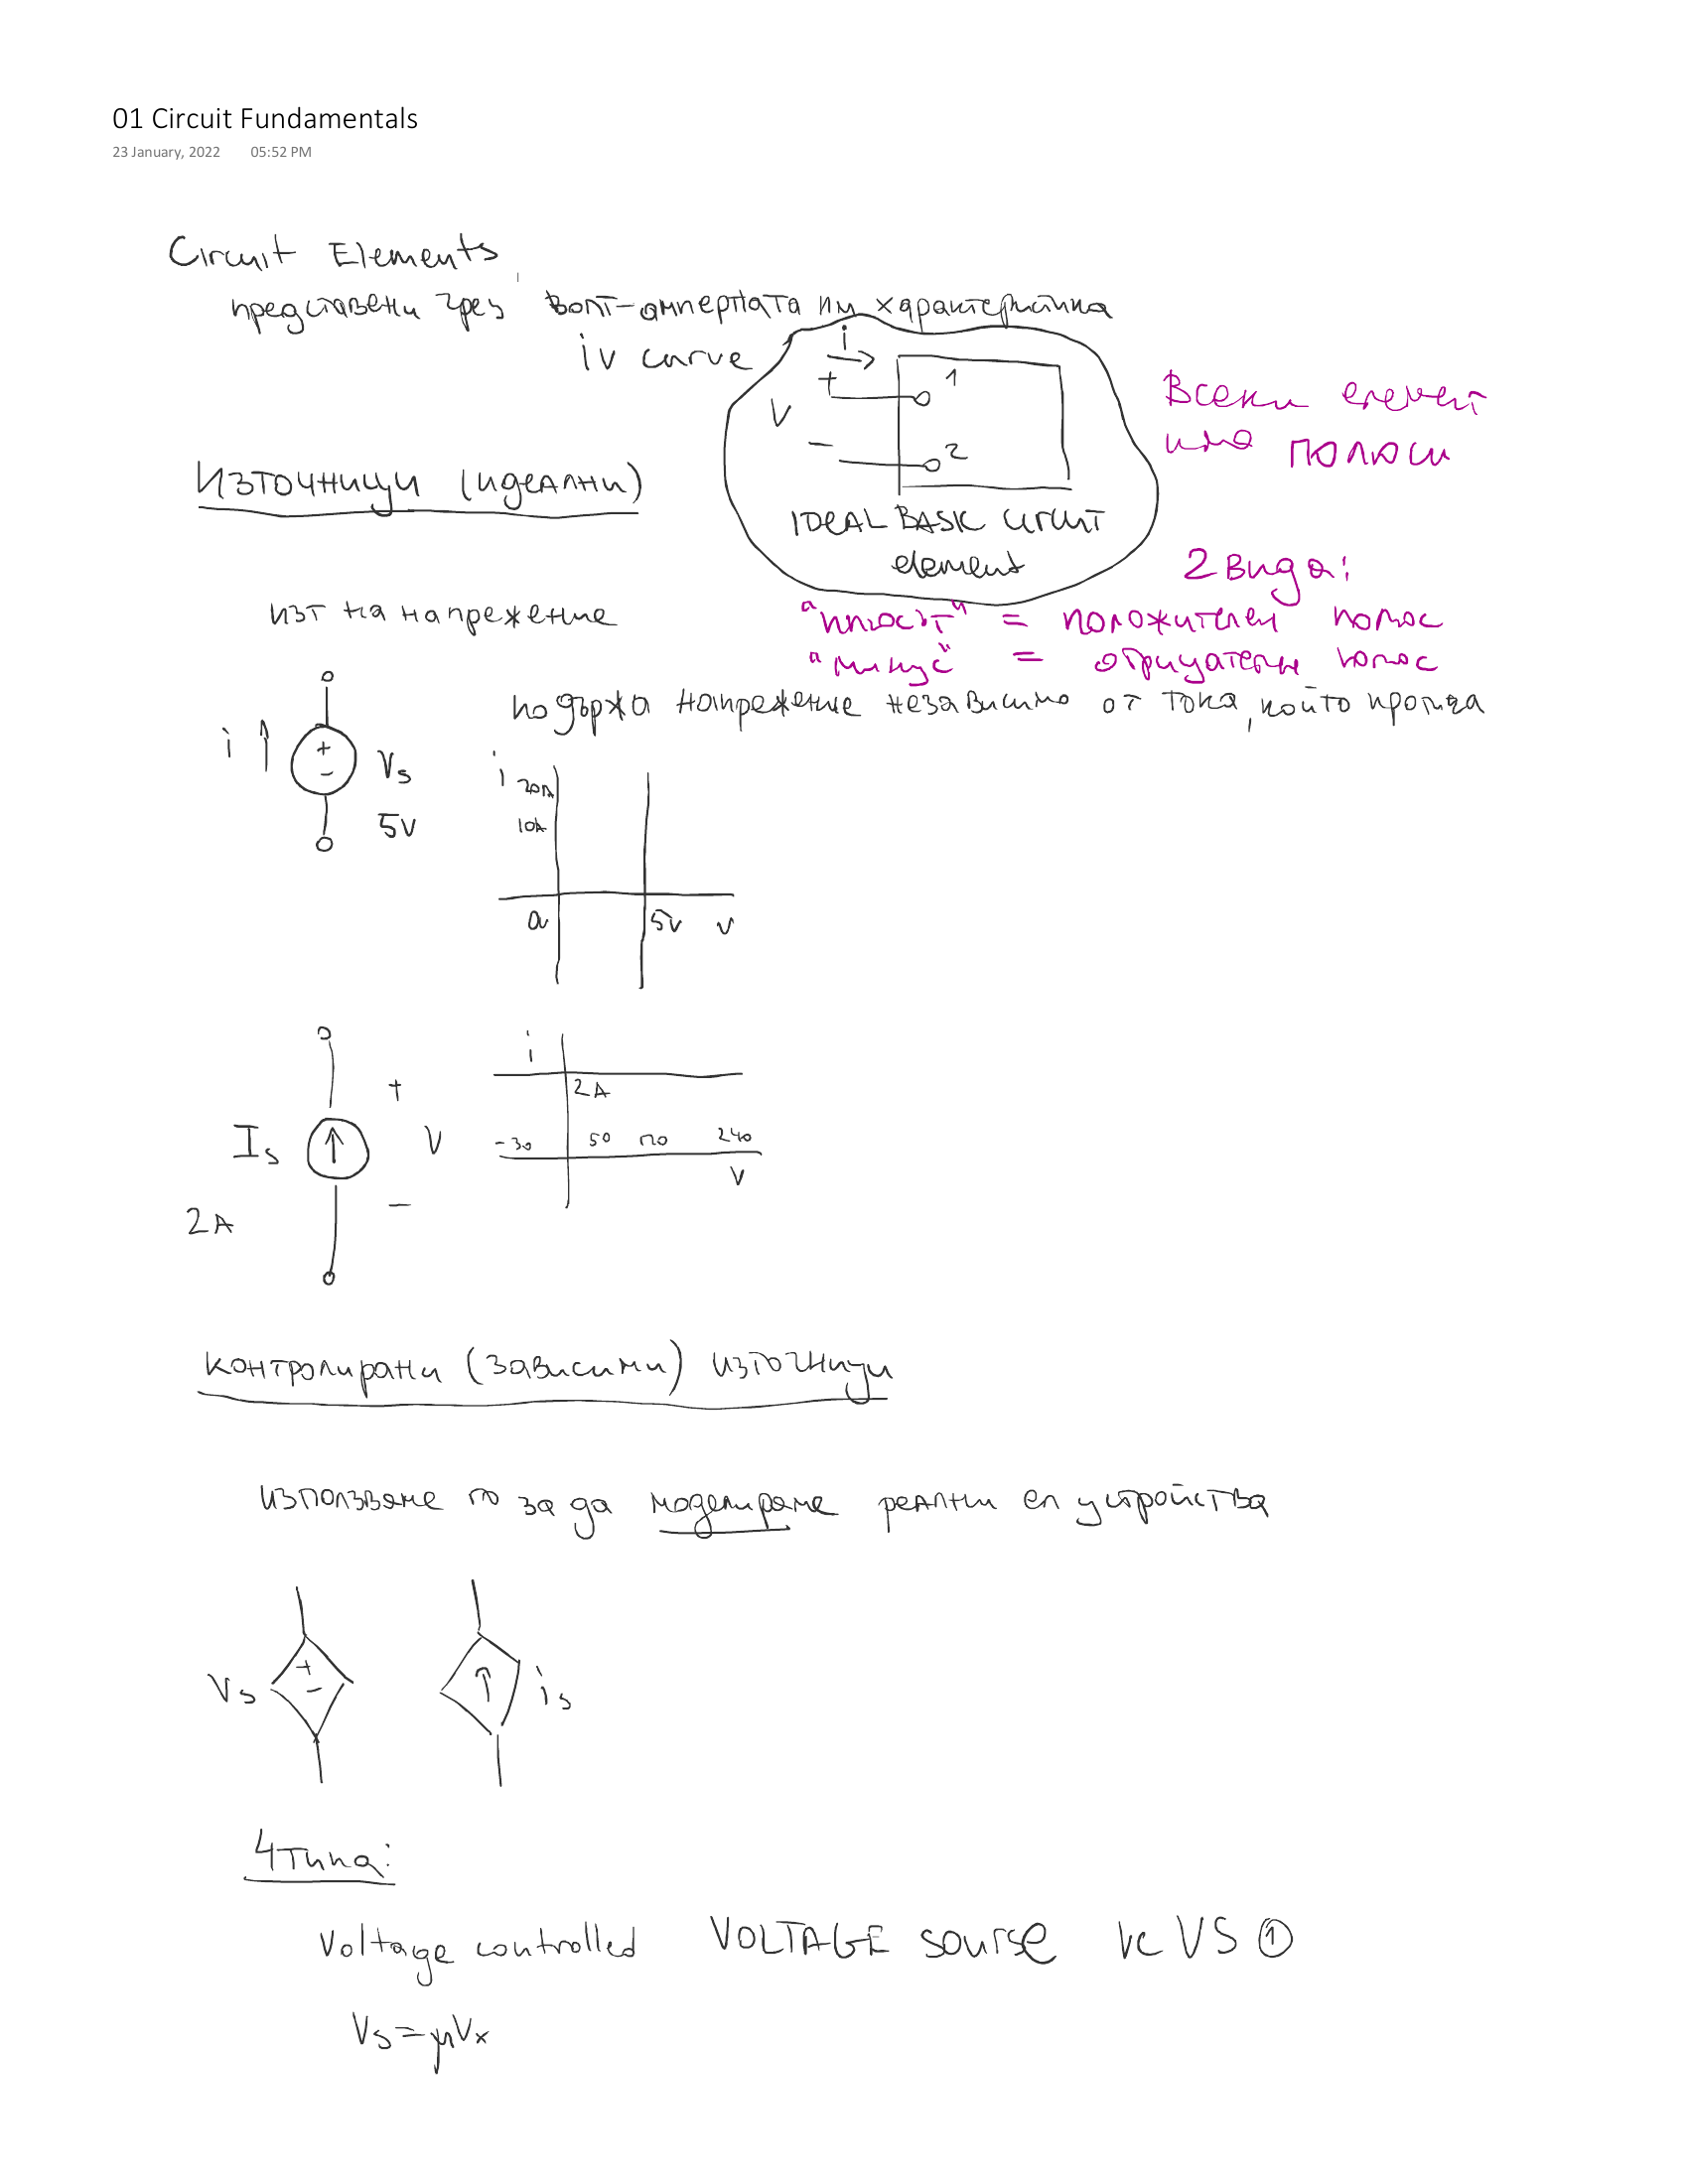 01 Circuit Fundamentals
23 January, 2022 05:52 PM
Circuit Elements
представени чрез волт-амперната им характеристика
iv curve
i
+ 1
V
- 2
IDEAL BASIC circuit
element
Всеки елемент
има полюси
Източници (идеални)
2 вида:
"плюсът" = положителен полюс
"минус" = отрицателен полюс
изт на напрежение
подържа напрежение независимо от тока, който протича
i
+
-
Vs
5V
i 20A
10A
0 5V V
Is
2A
+
V
-
i
2A
-30 50 120 240
V
контролирани (зависими) източници
използваме го за да моделираме реални ел устройства
Vs + -
is
4 типа:
Voltage controlled VOLTAGE sourse VCVS ①
Vs = μVx